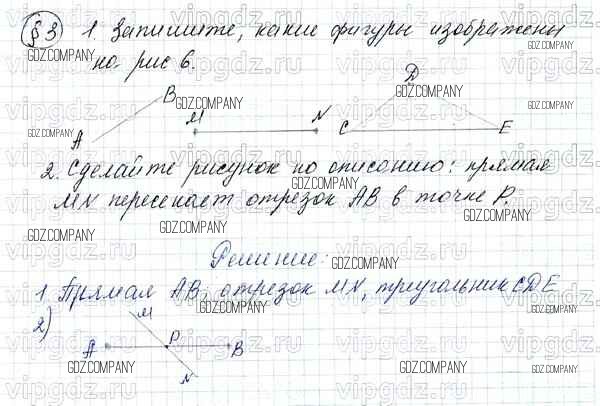 §3 1. Запишите, какие фигуры изображены
на рис 6.
A B M N C D E
2. Сделайте рисунок по описанию: прямая
MN пересекает отрезок AB в точке P.
Решение:
1 Прямая AB, отрезок MN, треугольник CDE
2)
M
A P B
N
GDZ.COMPANY
vipgdz.ru